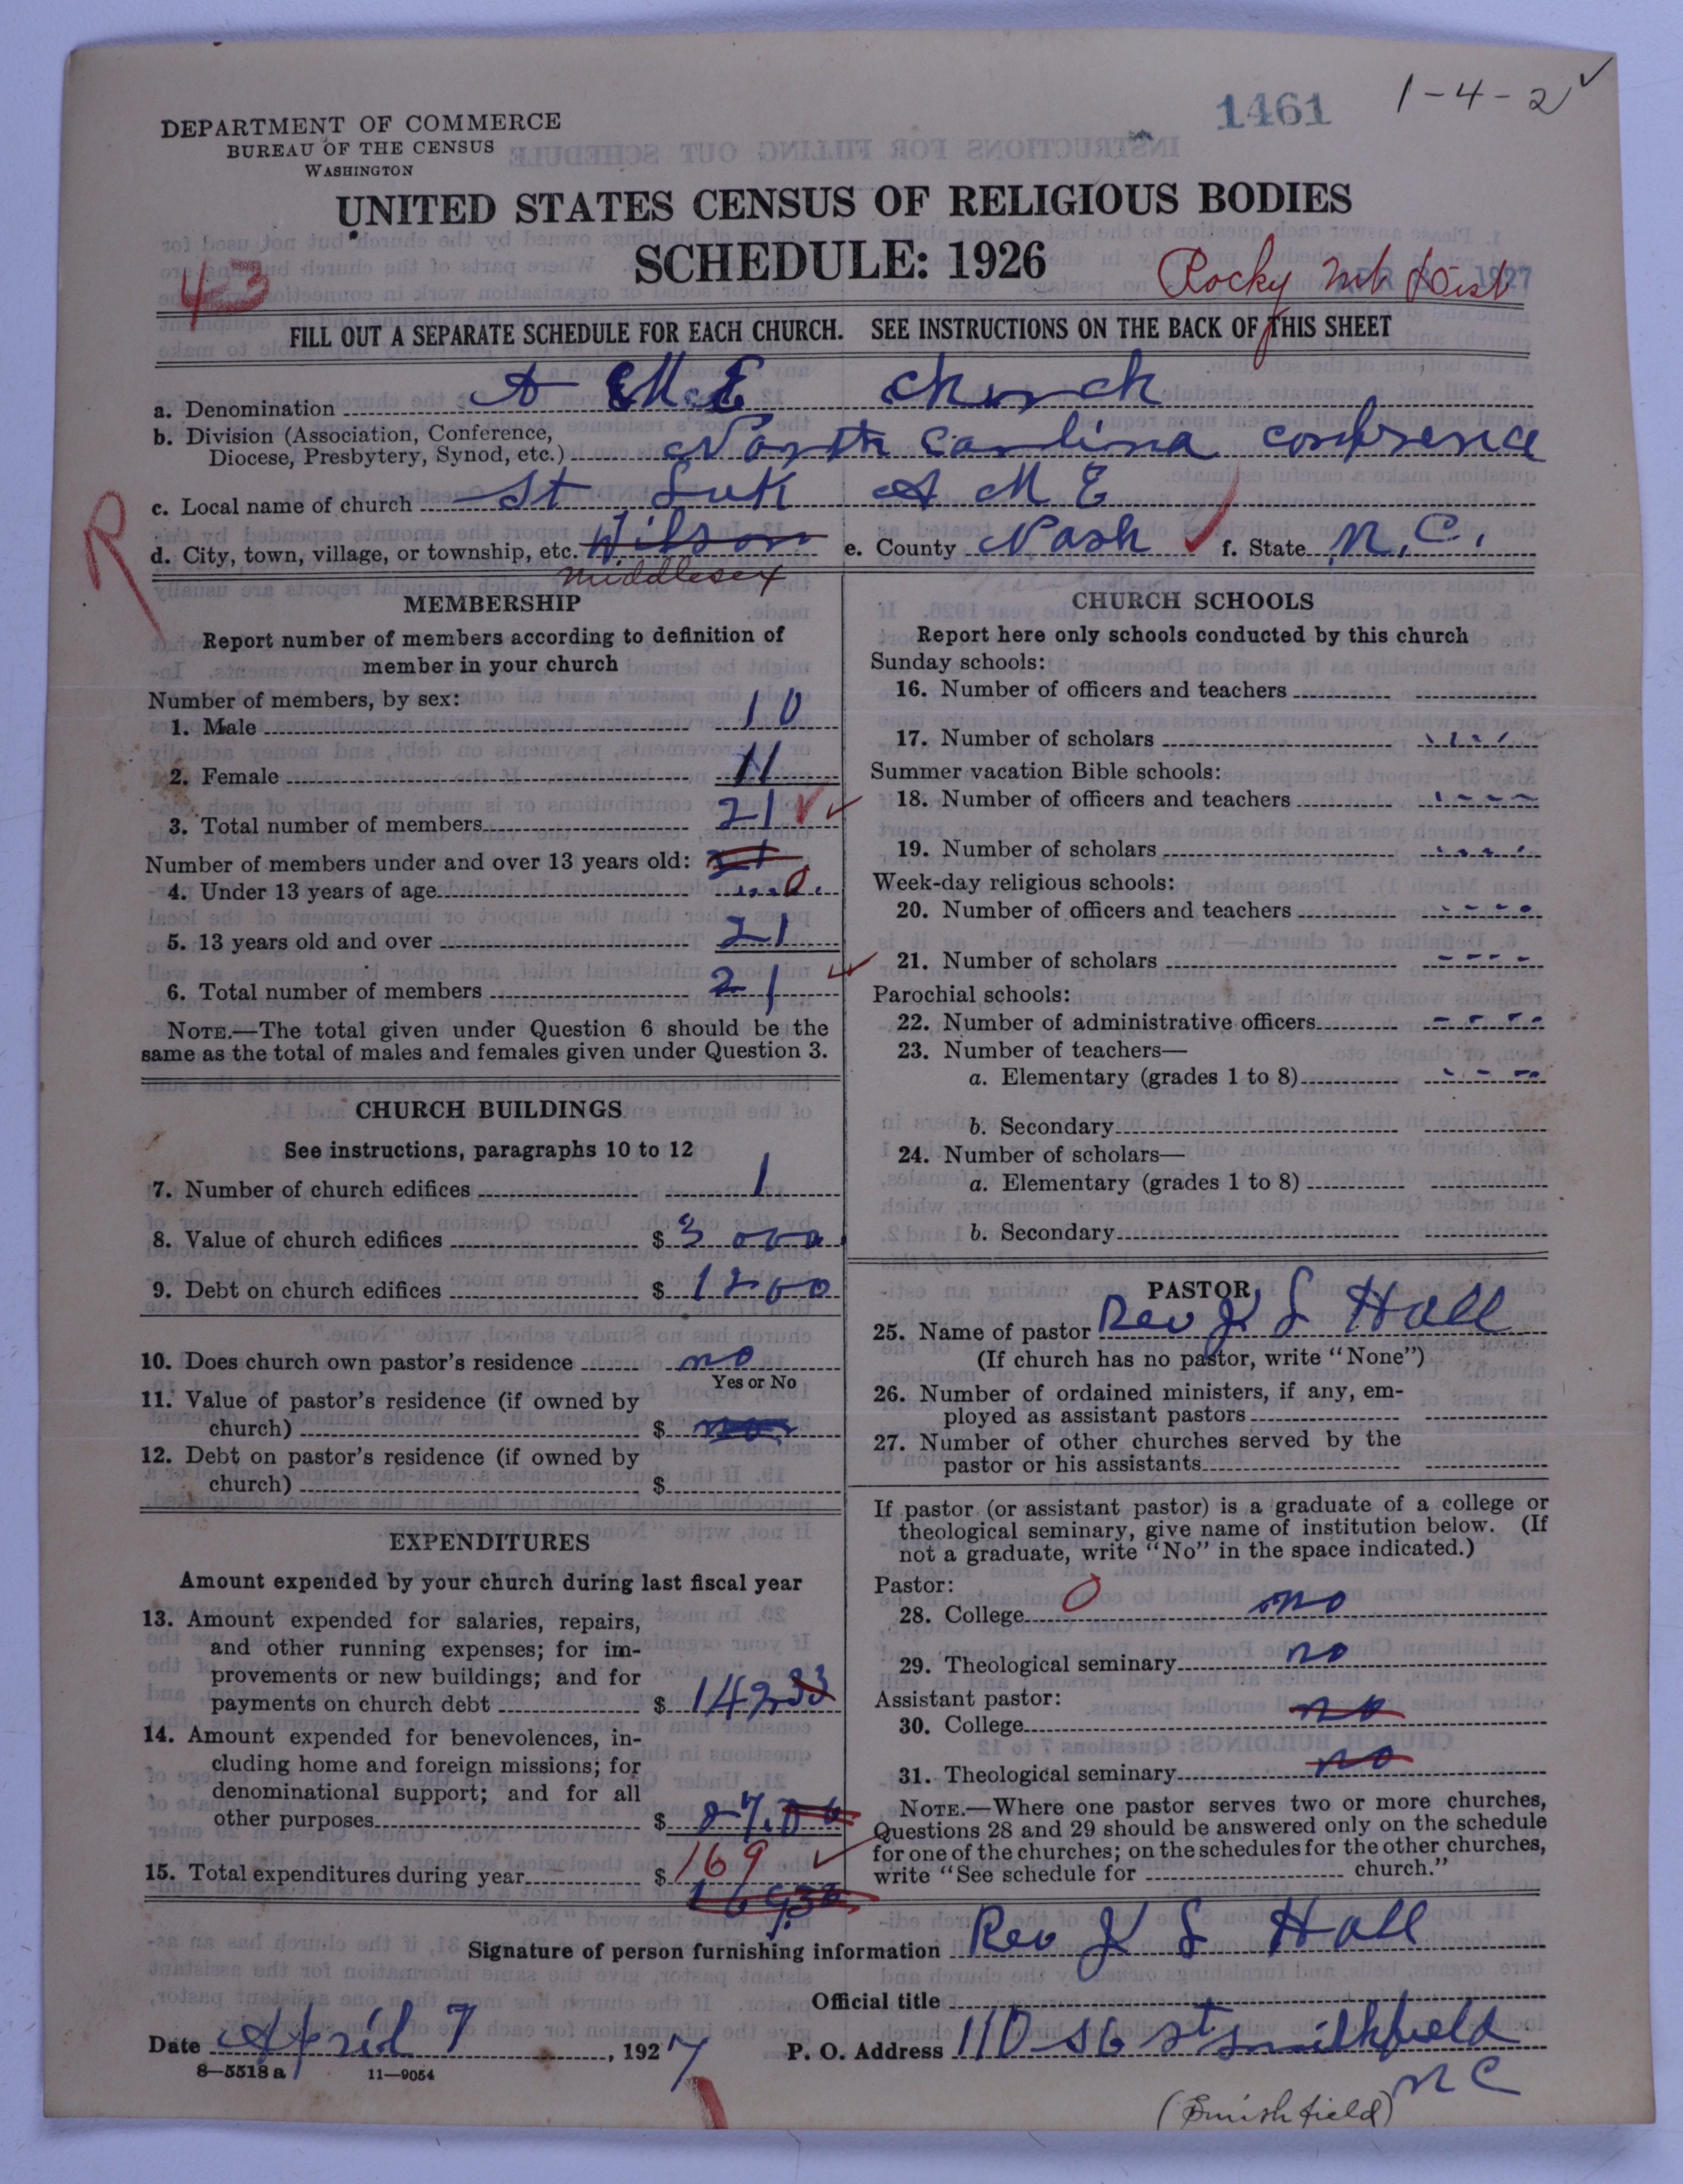 1461
1-4-2 ✓
DEPARTMENT OF COMMERCE
BUREAU OF THE CENSUS
WASHINGTON
UNITED STATES CENSUS OF RELIGIOUS BODIES
SCHEDULE: 1926
43
Rocky Mt Dist
1927
FILL OUT A SEPARATE SCHEDULE FOR EACH CHURCH. SEE INSTRUCTIONS ON THE BACK OF THIS SHEET
a. Denomination A M E Church
b. Division (Association, Conference,
Diocese, Presbytery, Synod, etc.) North Carolina conference
c. Local name of church St Luk A M E
R
d. City, town, village, or township, etc. Wilson e. County Nash ✓ f. State N.C.
Middlesex
MEMBERSHIP
Report number of members according to definition of
member in your church
Number of members, by sex:
1. Male 10
2. Female 11
3. Total number of members 21
Number of members under and over 13 years old:
4. Under 13 years of age 0
5. 13 years old and over 21
6. Total number of members 21
NOTE.—The total given under Question 6 should be the
same as the total of males and females given under Question 3.
CHURCH BUILDINGS
See instructions, paragraphs 10 to 12
7. Number of church edifices 1
8. Value of church edifices $ 3000
9. Debt on church edifices $ 1200
10. Does church own pastor's residence no
Yes or No
11. Value of pastor's residence (if owned by
church) $ no
12. Debt on pastor's residence (if owned by
church) $
EXPENDITURES
Amount expended by your church during last fiscal year
13. Amount expended for salaries, repairs,
and other running expenses; for im-
provements or new buildings; and for
payments on church debt $ 142 33
14. Amount expended for benevolences, in-
cluding home and foreign missions; for
denominational support; and for all
other purposes $ 27.
15. Total expenditures during year $ 169
CHURCH SCHOOLS
Report here only schools conducted by this church
Sunday schools:
16. Number of officers and teachers
17. Number of scholars
Summer vacation Bible schools:
18. Number of officers and teachers
19. Number of scholars
Week-day religious schools:
20. Number of officers and teachers
21. Number of scholars
Parochial schools:
22. Number of administrative officers
23. Number of teachers—
a. Elementary (grades 1 to 8)
b. Secondary
24. Number of scholars—
a. Elementary (grades 1 to 8)
b. Secondary
PASTOR
25. Name of pastor Rev J S Hall
(If church has no pastor, write "None")
26. Number of ordained ministers, if any, em-
ployed as assistant pastors
27. Number of other churches served by the
pastor or his assistants
If pastor (or assistant pastor) is a graduate of a college or
theological seminary, give name of institution below. (If
not a graduate, write "No" in the space indicated.)
Pastor:
28. College 0 no
29. Theological seminary no
Assistant pastor:
30. College no
31. Theological seminary no
NOTE.—Where one pastor serves two or more churches,
Questions 28 and 29 should be answered only on the schedule
for one of the churches; on the schedules for the other churches,
write "See schedule for church."
Signature of person furnishing information Rev J S Hall
Official title
Date April 7, 1927 P. O. Address 110 S 6 St Smithfield
N C
8—5518 a 11—9054
(Smithfield)